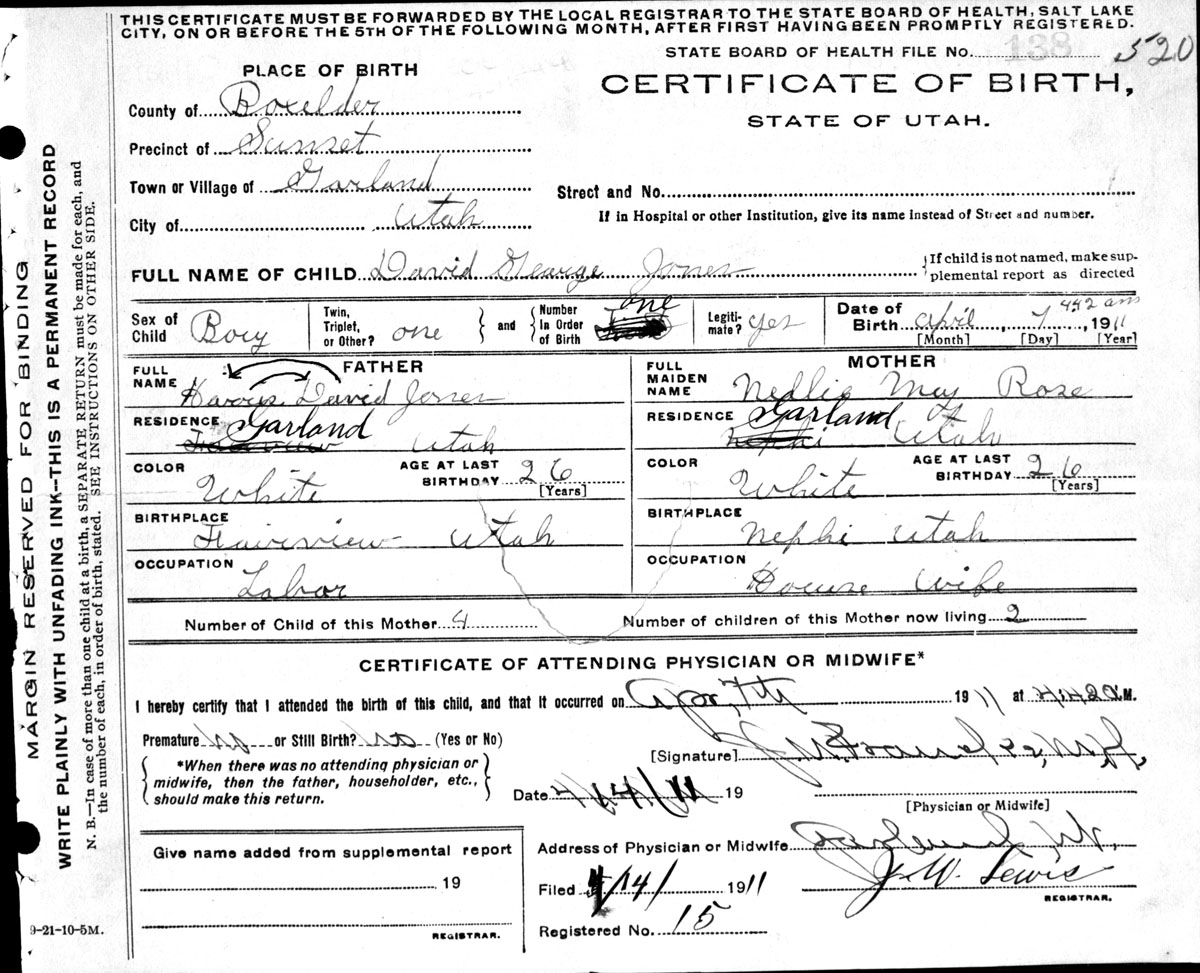 THIS CERTIFICATE MUST BE FORWARDED BY THE LOCAL REGISTRAR TO THE STATE BOARD OF HEALTH, SALT LAKE
CITY, ON OR BEFORE THE 5TH OF THE FOLLOWING MONTH, AFTER FIRST HAVING BEEN PROMPTLY REGISTERED.
STATE BOARD OF HEALTH FILE No. 138 520
PLACE OF BIRTH
CERTIFICATE OF BIRTH,
STATE OF UTAH.
County of Boxelder
Precinct of Sunset
Town or Village of Garland
Street and No.
City of Utah
If in Hospital or other Institution, give its name instead of Street and number.
FULL NAME OF CHILD David George Jones
If child is not named, make sup-
plemental report as directed
Sex of Child Boy
Twin, Triplet, or Other? one
and
Number In Order of Birth one
Legiti-mate? yes
Date of Birth April 7 4.42 am, 1911
[Month] [Day] [Year]
FATHER
FULL NAME David Jones
RESIDENCE Garland Utah
COLOR White
AGE AT LAST BIRTHDAY 26
[Years]
BIRTHPLACE Fairview Utah
OCCUPATION Labor
MOTHER
FULL MAIDEN NAME Nellie May Rose
RESIDENCE Garland Utah
COLOR White
AGE AT LAST BIRTHDAY 26
[Years]
BIRTHPLACE Nephi Utah
OCCUPATION House wife
Number of Child of this Mother 4
Number of children of this Mother now living 2
CERTIFICATE OF ATTENDING PHYSICIAN OR MIDWIFE*
I hereby certify that I attended the birth of this child, and that it occurred on Apr, 7th 1911 at 4:42 a M.
Premature no or Still Birth? no (Yes or No)
[Signature]
*When there was no attending physician or
midwife, then the father, householder, etc.,
should make this return.
Date 4/14/11 19
[Physician or Midwife]
Give name added from supplemental report
19
REGISTRAR.
Address of Physician or Midwife Garland, Ut.
Filed 4/14/ 1911
J. W. Lewis
REGISTRAR.
Registered No. 15
9-21-10-5M.
MARGIN RESERVED FOR BINDING
WRITE PLAINLY WITH UNFADING INK--THIS IS A PERMANENT RECORD
N. B.—In case of more than one child at a birth, a SEPARATE RETURN must be made for each, and
the number of each, in order of birth, stated. SEE INSTRUCTIONS ON OTHER SIDE.